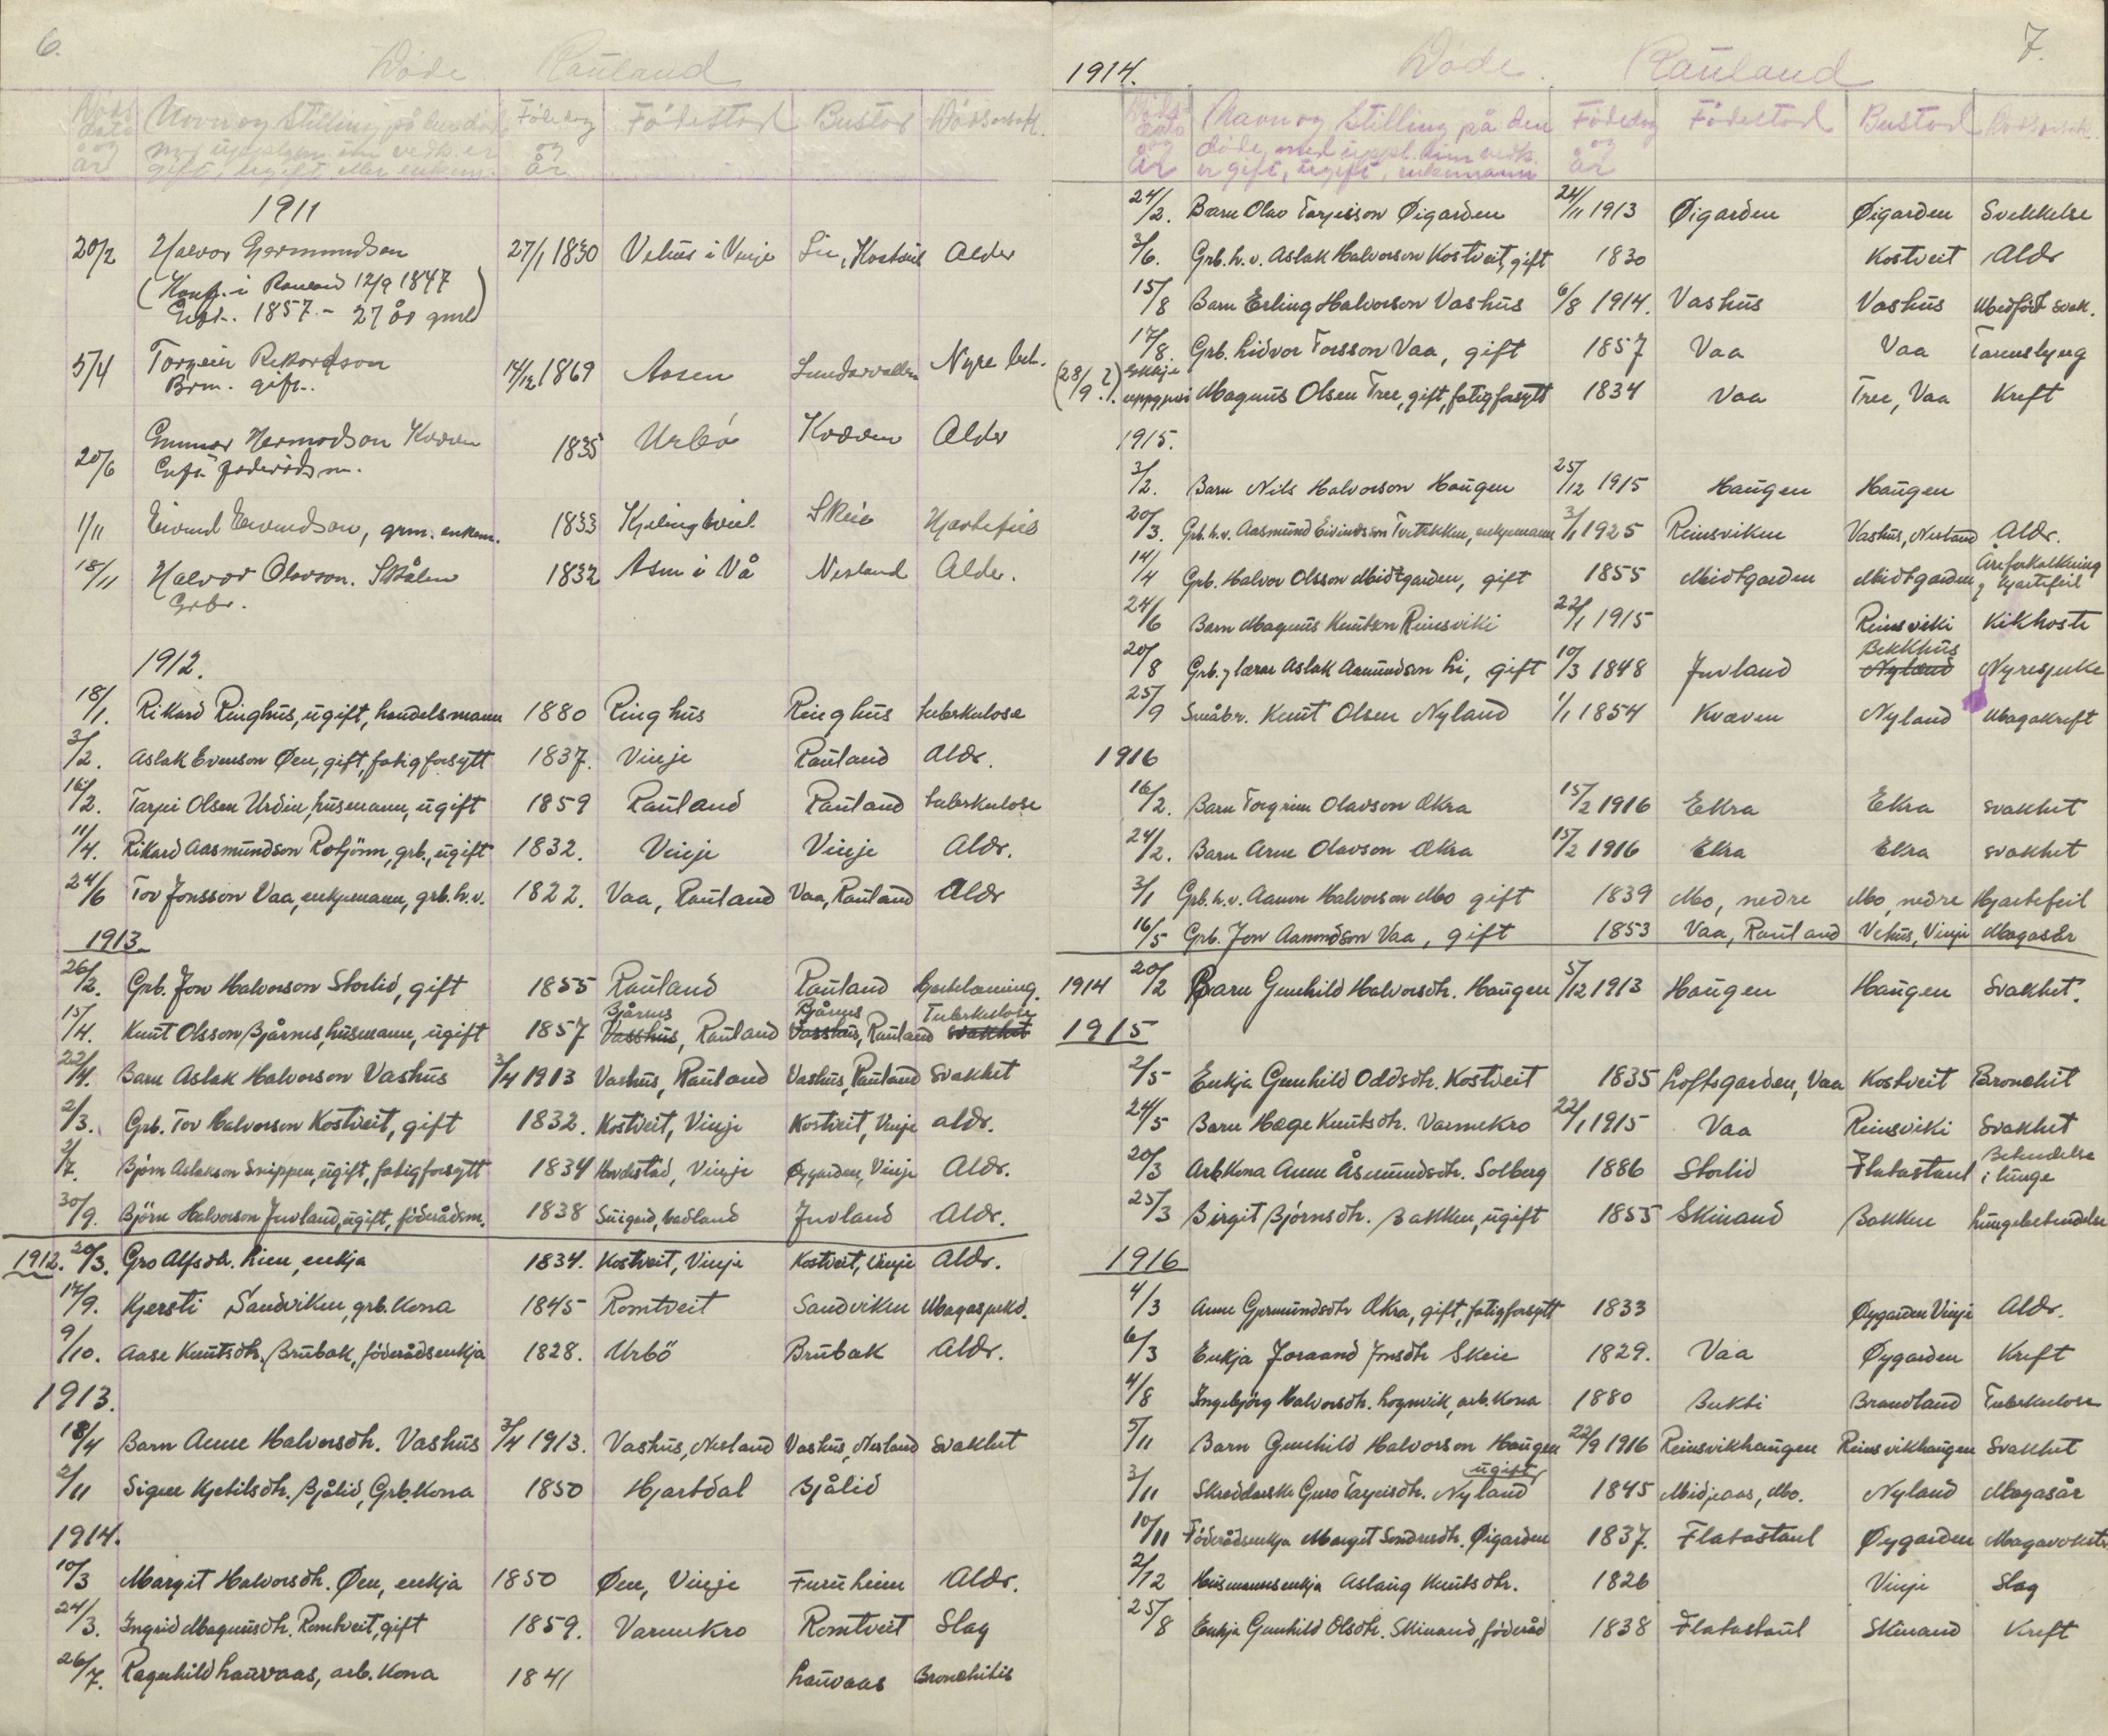 6.
Døde Rauland
Døds dato og år | Navn og Stilling på | Fødedag og år | Fødestad | Bustad | Dødsorsak.
1911
20/2 Halvor Germundson 27/1 1830 Vehus i Vinje Alder
(Konf. i Rauland 12/9 1847
1857 - 27 år)
5/4 Torgeir Rikardson 14/12 1869 Aasen Nyre
Brm. gift.
20/6 Gunnar Hermodson Kvæven 1835 Urbö Kvæven Alder
1/11 Eivind Eivindson, grm. enkem. 1833 Skeie Hjartefeil
18/11 Halvor Olavson. Skålen 1832 Åsen i Vå Nesland Alder.
Grbr.
1912.
18/1. Rikard Ringhus, ugift, handelsmann 1880 Ringhus Ringhus tuberkulose
3/2. Aslak Evenson Øen, gift, fatigforsytt 1837. Vinje Rauland Aldr.
16/2. Tarjei Olsen Urdin, husmann, ugift 1859 Rauland Rauland tuberkulose
11/4. Rikard Aasmundson Rotjönn, grb., ugift 1832. Vinje Vinje Aldr.
24/6 Tov Jonsson Vaa, enkjemann, grb. h.v. 1822. Vaa, Rauland Vaa, Rauland Aldr
1913
26/2. Grb. Jon Halvorson Storlid, gift 1855 Rauland Rauland
Bjårnes Bjårnes Tuberkulose
15/4. Knut Olsson Bjårnes, husmann, ugift 1857 Vasshus, Rauland Vasshus, Rauland svakhet
22/4. Barn Aslak Halvorson Vashus 3/4 1913 Vashus, Rauland Vashus, Rauland Svakhet
2/3. Grb. Tov Halvorson Kostveit, gift 1832. Kostveit, Vinje Kostveit, Vinje aldr.
2/7. Bjørn Aslakson Snippen, ugift, fatigforsytt 1834 Vinje Øygarden, Vinje Aldr.
30/9. Björn Halvorson Juvland, ugift, föderådsm. 1838 Juvland Aldr.
1912. 20/3. Gro Alfsdh. Lien, enkja 1834. Kostveit, Vinje Kostveit, Vinje Aldr.
17/9. Kjersti Sandviken, grb. Kona 1845 Romtveit Sandviken Magasjukd.
9/10. Aase Knutsdh. Brubak, föderådsenkja 1828. Urbö Brubak Aldr.
1913.
18/4 Barn Anne Halvorsdh. Vashus 3/4 1913. Vashus, Nesland Vashus, Nesland svakhet
2/11 Signe Kjetilsdh. Bjålid, Grb.Kona 1850 Hjartdal Bjålid
1914.
10/3 Margit Halvorsdh. Øen, enkja 1850 Øen, Vinje Furuheim Aldr.
24/3. Ingrid Magnusdh. Romtveit, gift 1859. Varmekro Romtveit Slag
26/7. Ragnhild Lauvaas, arb. Kona 1841 Lauvaas Bronchitis
7.
1914. Døde. Rauland
Døds dato og år | Navn og Stilling på den døde, med uppl. um vedk. er gift, ugift, enkemann | Fødedag og år | Fødestad | Bustad | Dødsorsak.
24/2. Barn Olav Tarjeisson Øigarden 24/11 1913 Øigarden Øigarden Svekkelse
3/6. Grb. h.v. Aslak Halvorson Kostveit, gift 1830 Kostveit Aldr
15/8 Barn Erling Halvorson Vashus 6/8 1914. Vashus Vashus Medfødt svak.
17/8. Grb. Lidvor Torsson Vaa, gift 1857 Vaa Vaa
(28/9 ?). Ikkje uppgjeve Magnus Olsen Tree, gift, fatigforsytt 1834 Vaa Tree, Vaa Kreft
1915.
3/2. Barn Nils Halvorson Haugen 25/12 1915 Haugen Haugen
20/3. Grb. h.v. Aasmund Eivindsson Tveitekken, enkjemann 3/1 1925 Reinsviken Vashus, Nesland Aldr.
14/4 Grb. Halvor Olsson Midtgarden, gift 1855 Midtgarden Midtgarden Åreforkalkning og Hjartefeil
24/6 Barn Magnus Knutson Reinsviki 22/1 1915 Reinsviki Kikhoste
Bekkhus
20/8 Grb. og lærar Aslak Aamundson Li, gift 10/3 1848 Juvland Nyland Nyresjuke
25/9 Småbr. Knut Olsen Nyland 1/1 1854 Kvæven Nyland Magakreft
1916
16/2. Barn Torgrim Olavson Økra 15/2 1916 Ekra Ekra svakhet
24/2. Barn Arne Olavson Økra 15/2 1916 Ekra Ekra svakhet
3/1 Grb. h.v. Aanon Halvorson Mo gift 1839 Mo, nedre Mo, nedre Hjartefeil
16/5 Grb. Jon Aamondson Vaa, gift 1853 Vaa, Rauland Vehus, Vinje Magasår
1914 20/2 Barn Gunhild Halvorsdh. Haugen 5/12 1913 Haugen Haugen Svakhet.
1915
2/5 Enkja Gunhild Oddsdh. Kostveit 1835 Loftsgarden, Vaa Kostveit Bronchit
24/5 Barn Hæge Knutsdh. Varmekro 22/1 1915 Vaa Reinsviki Svakhet
20/3 Arb.Kona Anne Åsmundsdh. Solberg 1886 Storlid Flatastaul Betendelse i lunge
25/3 Birgit Bjørnsdh. Bakken, ugift 1855 Skinand Bakken Lungebetendelse
1916
4/3 Anne Gjermundsdh Økra, gift, fatigforsytt 1833 Øygarden Vinje Aldr.
6/3 Enkja Joraand Jonsdh Skeie 1829. Vaa Øygarden Kreft
4/8 Ingebjörg Halvorsdh. Lognvik, arb. Kona 1880 Bukti Brandland Tuberkulose
5/11 Barn Gunhild Halvorson Haugen 22/9 1916 Reinsvikhaugen Reinsvikhaugen Svakhet
ugift
3/11 Skreddarske Guro Tarjeisdh. Nyland 1845 Midjeaas, Mo. Nyland Magasår
10/11 Föderådsenkja Margit Sondresdh. Øigarden 1837. Flatastaul Øygarden Magavokstr
2/12 Husmannsenkja Aslaug Knutsdhr. 1826 Vinje Slag
25/8 Enkja Gunhild Olsdh. Skinand, föderåd 1838 Flatastaul Skinand Kreft